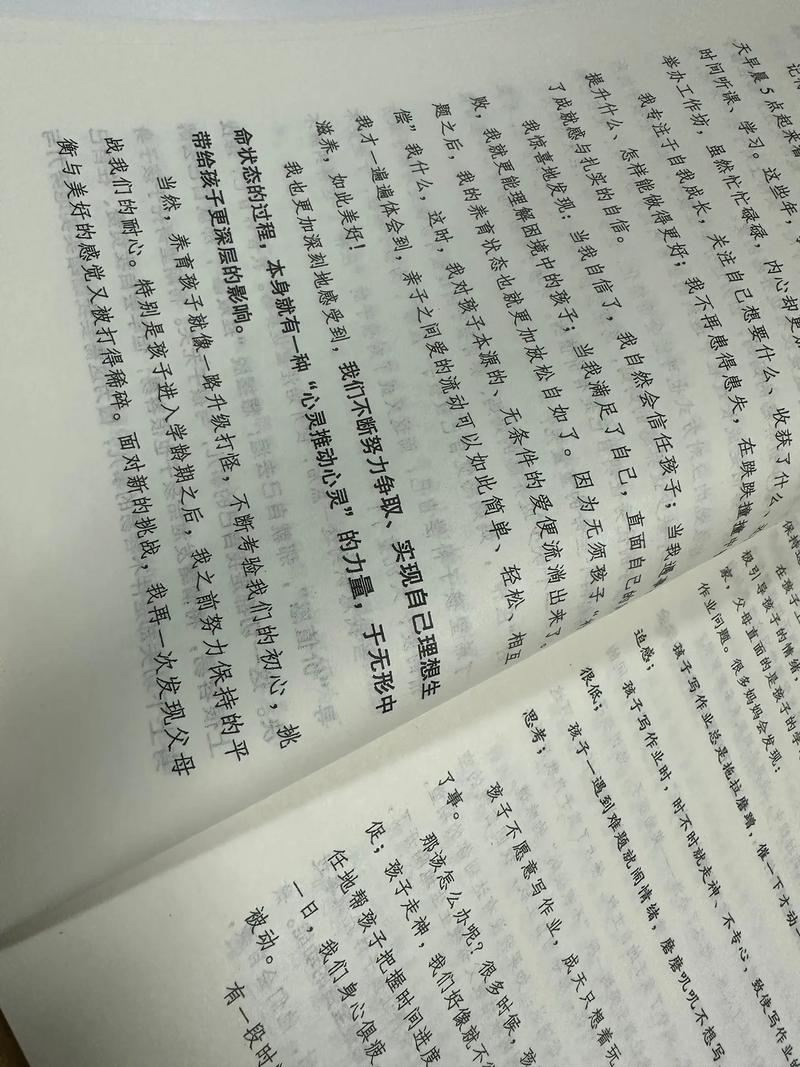 天早晨 5 点起来看
时间听课、学习。这些年，
举办工作坊，虽然忙忙碌碌，内心却更加
我专注于自我成长，关注自己想要什么、收获了什么、
提升什么、怎样能做得更好；我不再患得患失，在跌跌撞撞
了成就感与扎实的自信。
我惊喜地发现：当我自信了，我自然会信任孩子；当我
败，我就更能理解困境中的孩子；当我满足了自己，直面自己的
题之后，我的养育状态也就更加放松自如了。因为无须孩子“
偿”我什么，这时，我对孩子本源的、无条件的爱便流淌出来了，
我才一遍遍体会到，亲子之间爱的流动可以如此简单、轻松、相互
滋养，如此美好！
我也更加深刻地感受到，我们不断努力争取、实现自己理想生
命状态的过程，本身就有一种“心灵推动心灵”的力量，于无形中
带给孩子更深层的影响。
当然，养育孩子就像一路升级打怪，不断考验我们的初心，挑
战我们的耐心。特别是孩子进入学龄期之后，我之前努力保持的平
衡与美好的感觉又被打得稀碎。面对新的挑战，我再一次发现父母
保持
在孩子上
极引导孩子的情绪，
家，父母直面的是孩子的学
作业问题。很多妈妈会发现：
孩子写作业总是拖拉磨蹭，催一下才动一
迫感；
孩子写作业时，时不时就走神、不专心，致使写作业的
很低；
孩子一遇到难题就闹情绪，磨磨叽叽不想写
思考；
孩子不愿意写作业，成天只想着玩
了事。
那该怎么办呢？很多时候，孩
促；孩子走神，我们好像就不
任地帮孩子把握时间进度
一日，我们身心俱疲
被动。
有一段时